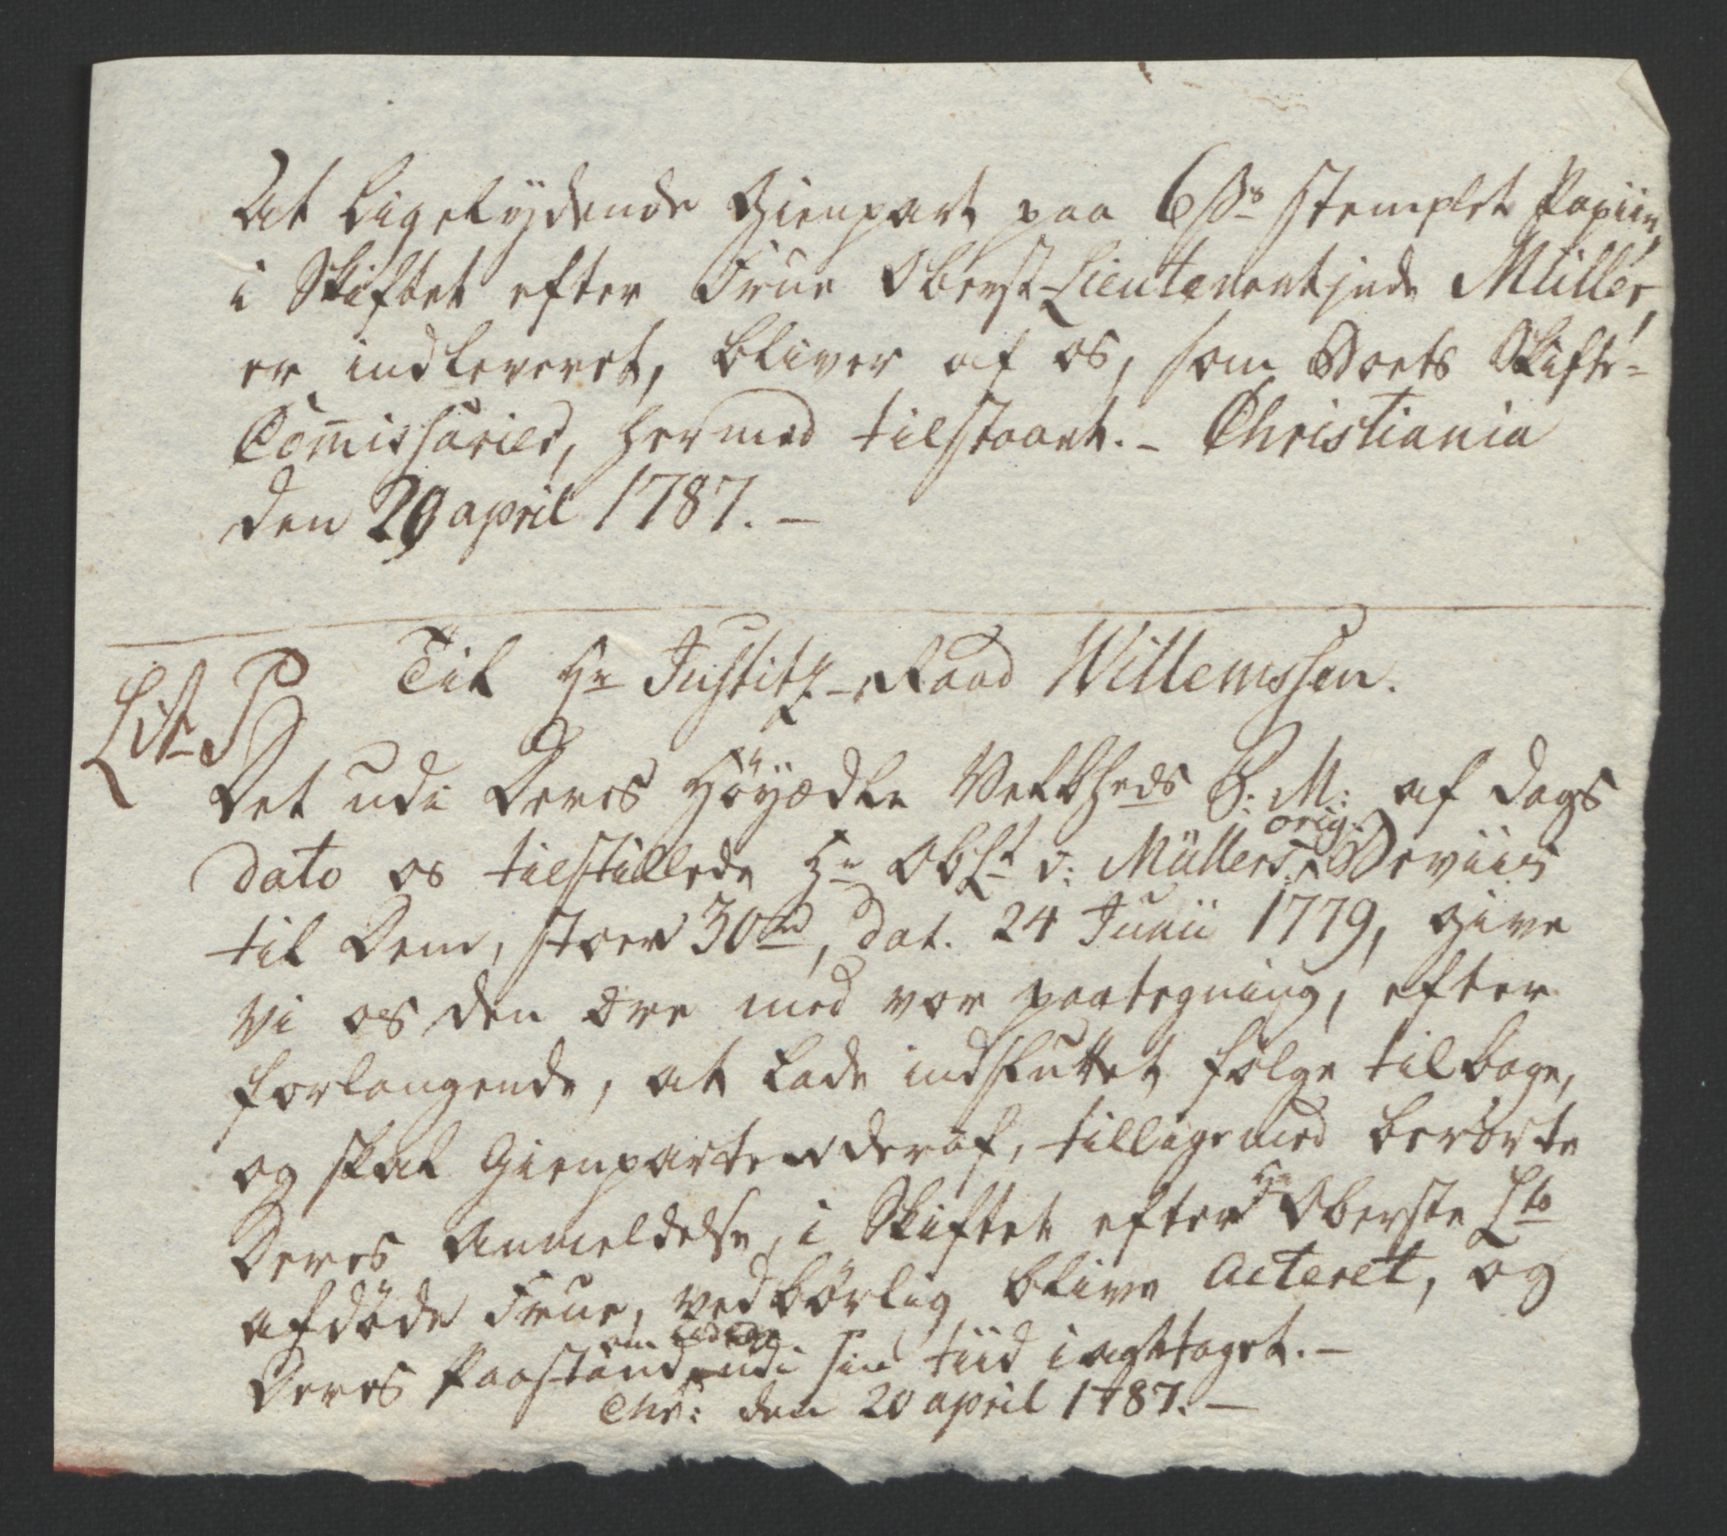 At ligelydende Gienpart paa 6 sk. stemplet Papiir,
i Skiftet efter Frue Oberst-Lieutenantinde Müller,
er indleveret, bliver af os, som Boets Skifte-
Commissarier, hermed tilstaaet. - Christiania
den 20 april 1787. -
Litr. P
Til Hr Justitz-Raad Willemssen.
Det udi Deres Høyædle Velbheds P: M: af Dags
dato os tilstillede Hr ObLt v: Müllers orig: Beviis
til Dem, stoer 30 rd, dat. 24 Junii 1779, give
vi os den ære med vor paategning, efter
forlangende, at lade indsluttet følge tilbage,
og skal Gienparten deraf, tilligemed berørte
Deres Anmeldelse, i Skiftet efter Hr Oberste Lts
afdøde Frue, vedbørlig blive Acteret, og
Deres Paastand om udi sin tiid iagttaget. -
Chr: den 20 april 1787. -